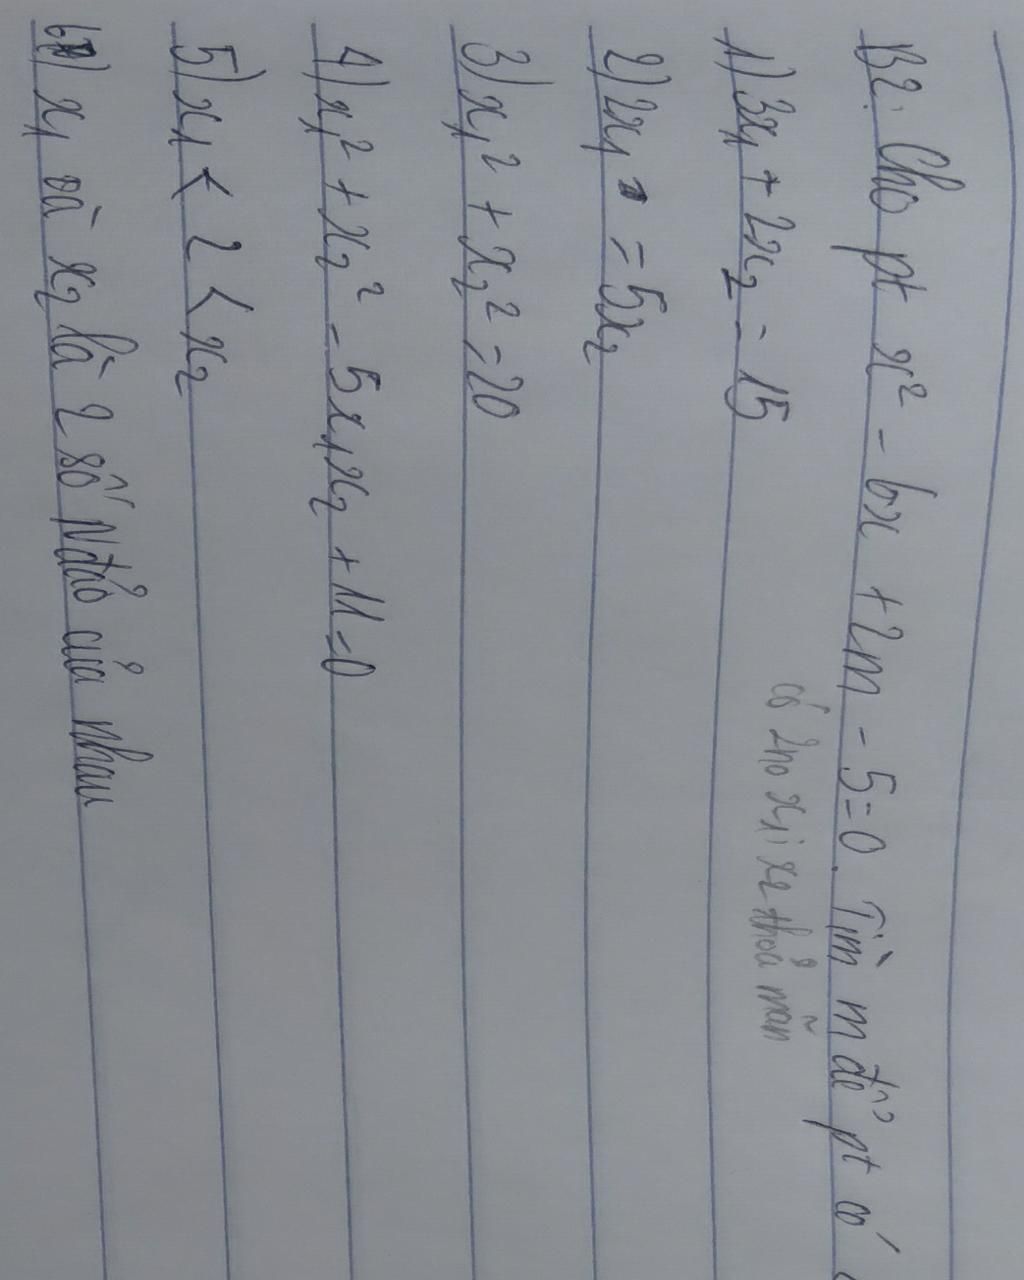 B2: Cho pt x² - 6x + 2m - 5 = 0. Tìm m để pt có
có 2no x₁; x₂ thoả mãn
1) 3x₁ + 2x₂ = 15
2) 2x₁ = 5x₂
3) x₁² + x₂² = 20
4) x₁² + x₂² - 5x₁x₂ + 11 = 0
5) x₁ < 2 < x₂
6) x₁ và x₂ là 2 số Nđảo của nhau